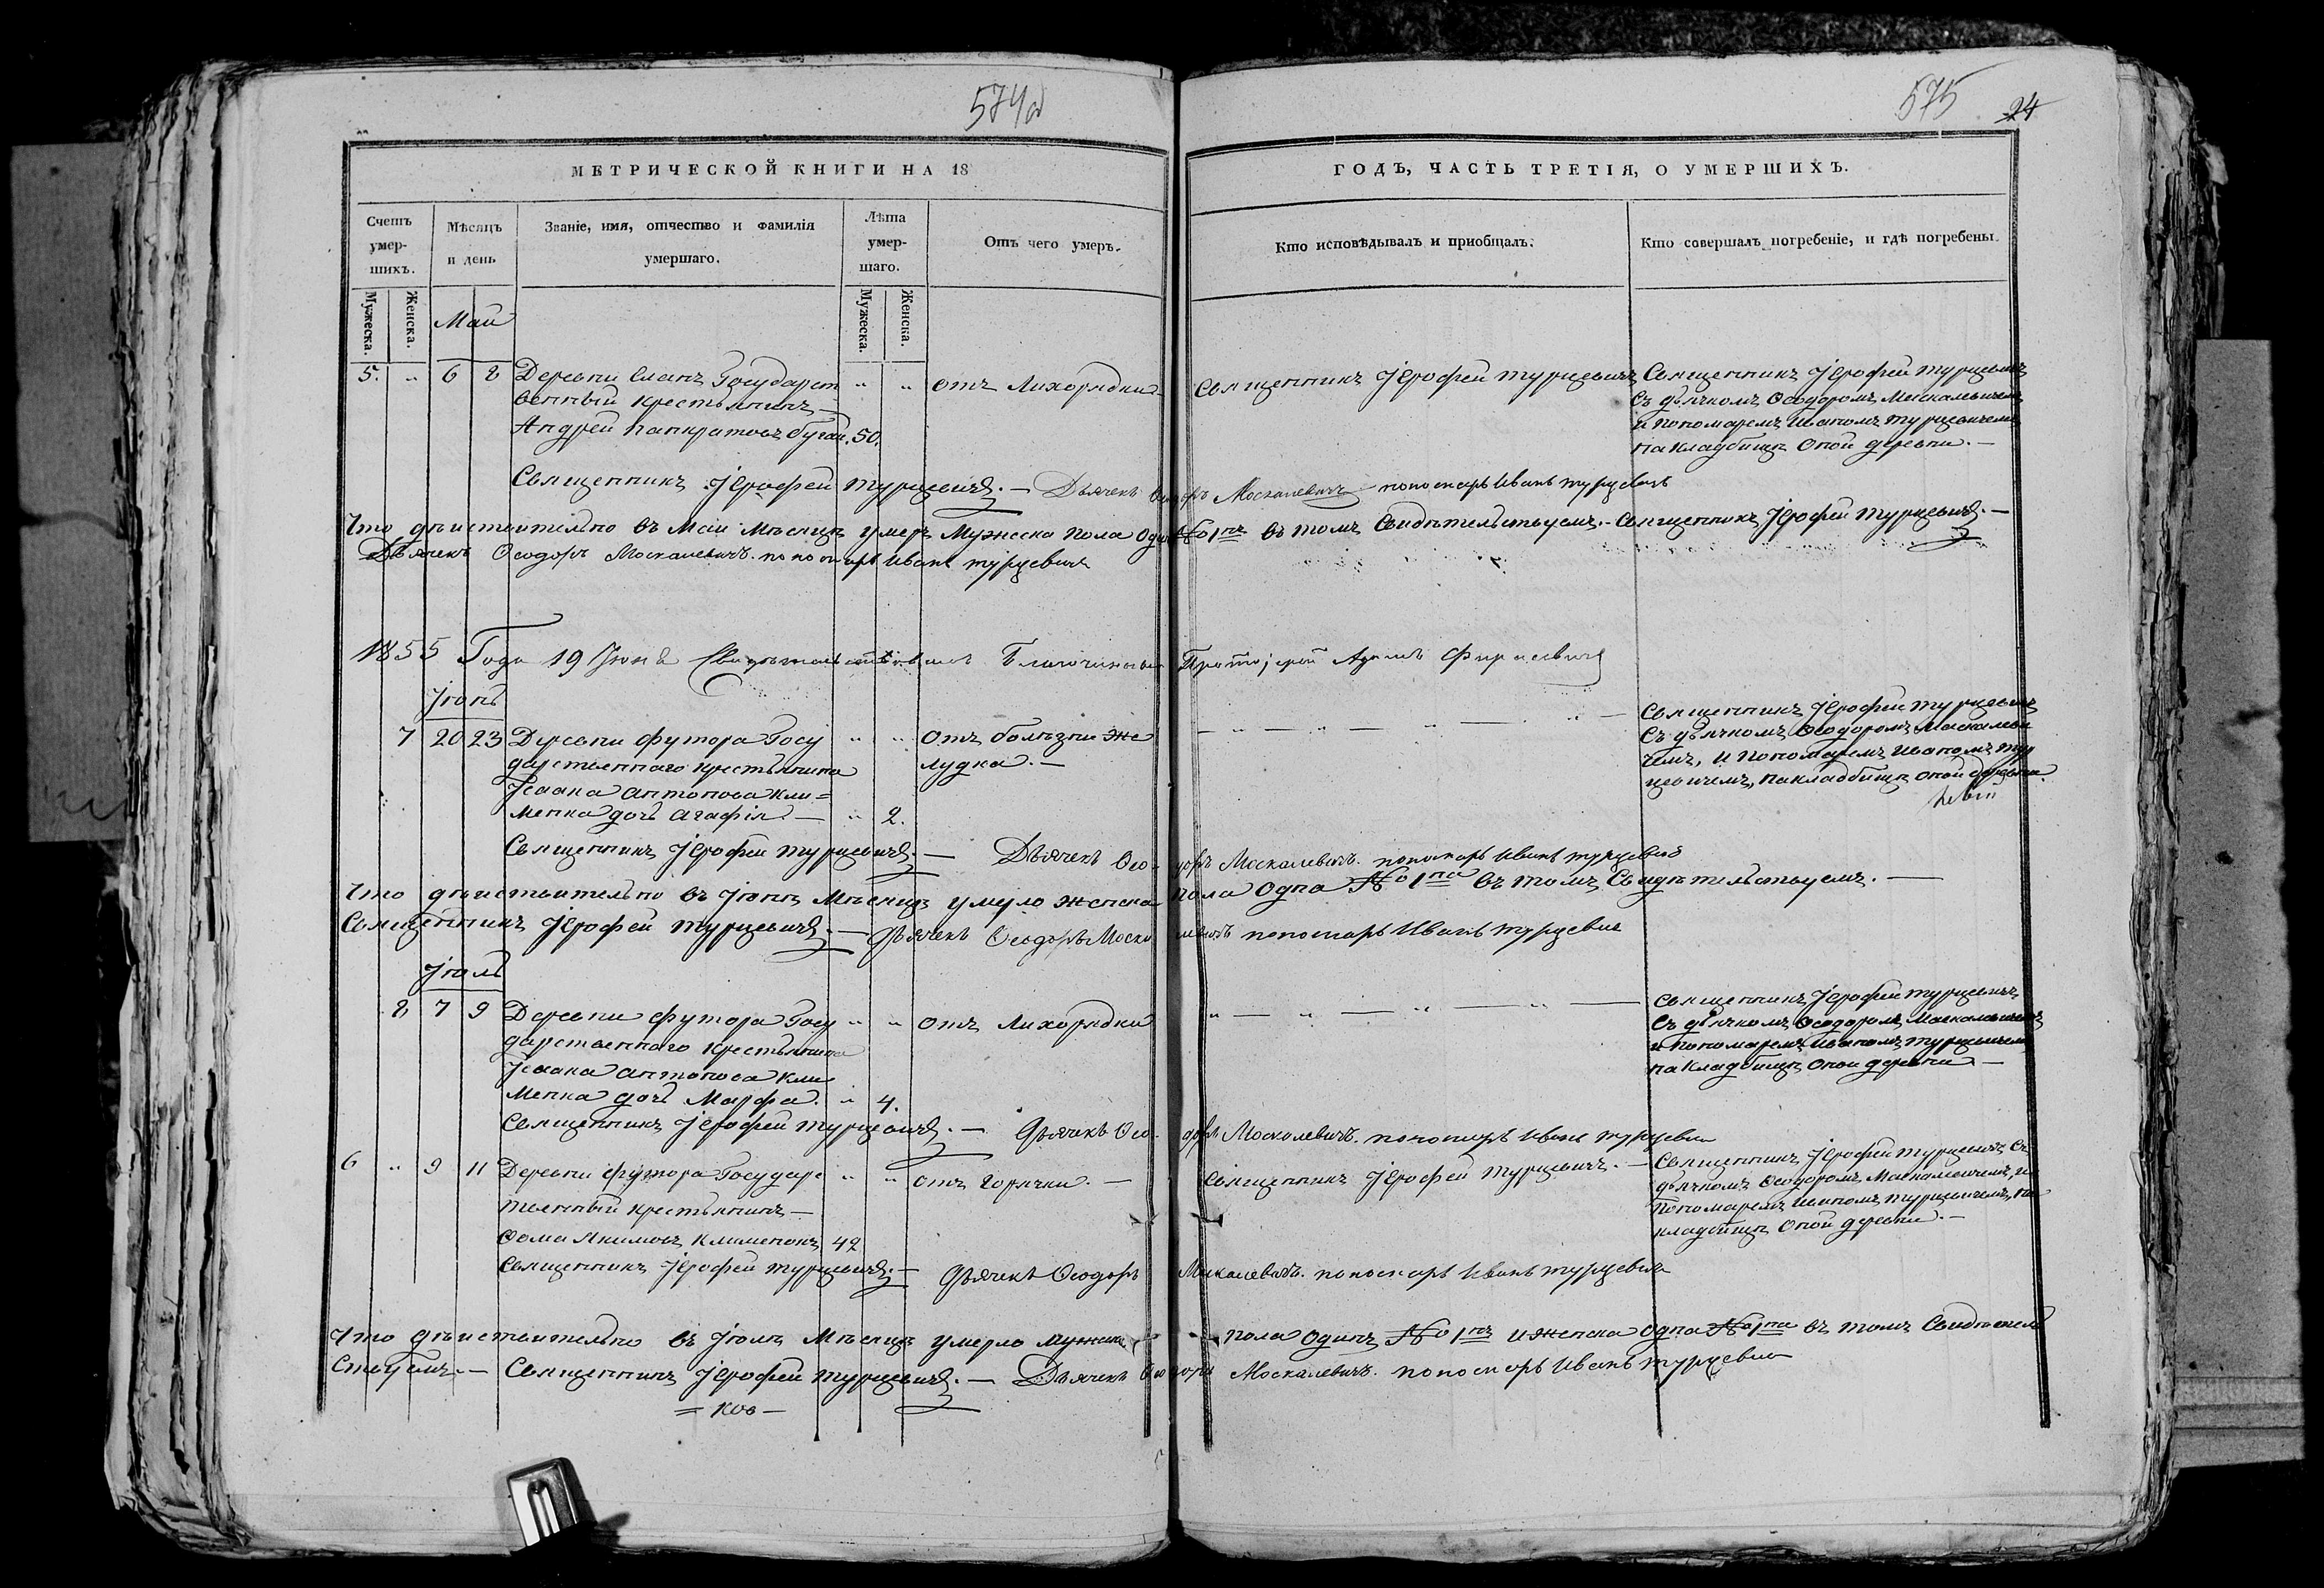 574об
575 24
МЕТРИЧЕСКОЙ КНИГИ НА 18
ГОДЪ, ЧАСТЬ ТРЕТІЯ, О УМЕРШИХЪ.
Счетъ умер-шихъ.
Мѣсяцъ и день
Званіе, имя, отчество и фамилія умершаго.
Лѣта умер-шаго.
Отъ чего умеръ.
Кто исповѣдывалъ и пріобщалъ.
Кто совершалъ погребеніе, и гдѣ погребены.
Мужеска. Женска.
Мужеска. Женска.
Май
5. " 6 8 Деревни Сланъ Государст " " отъ Лихорядки
венный крестьянинъ —
Андрей Панкратовъ Бугай. 50.
Священникъ Іерофей Турцевичъ
Священникъ Іерофей Турцевичъ
Съ дьячкомъ Ѳеодоромъ Москалевичемъ
и Пономаремъ Иваномъ Турцевичемъ
на кладбищѣ оной деревни. —
Священникъ Іерофей Турцевичъ. — Дьячекъ Ѳеодоръ Москалевичъ пономарь Иванъ Турцевичъ
Что дѣйствительно въ Маи Мѣсяцѣ умеръ Мужеска пола одинъ № 1нъ въ томъ Свидѣтельствуемъ. — Священникъ Іерофей Турцевичъ. —
Дьячекъ Ѳеодоръ Москалевичъ. пономарь Иванъ Турцевичъ
1855 Года 19 Іюня Свидѣтельствовалъ Благочинный Протоіерей Адамъ
Іюнь
7 20 23 Деревни Футора Госу " " Отъ болѣзни же
дарственнаго крестьянина лудка. —
Ісаака Антонова Кли=
менка дочь Агафія — " 2.
Священникъ Іерофей Турцевичъ
Съ дьячкомъ Ѳеодоромъ Москалеви
чемъ, и Пономаремъ Иваномъ Тур
цевичемъ, на кладбищѣ оной деревни
Священникъ Іерофей Турцевичъ. — Дьячекъ Ѳеодоръ Москалевичъ. пономарь Иванъ Турцевичъ
Что дѣйствительно въ Іюнѣ Мѣсяцѣ умерло женска пола Одна № 1на въ томъ Свидѣтельствуемъ. —
Священникъ Іерофей Турцевичъ. — Дьячекъ Ѳеодоръ Москалевичъ пономарь Иванъ Турцевичъ
Іюль
8 7 9 Деревни Футора Госу " " отъ Лихорядки
дарственнаго крестьянина
Ісаака Антонова Кли
менка дочь Марфа. " 4.
Священникъ Іерофей Турцевичъ
Съ дьячкомъ Ѳеодоромъ Москалевичемъ
и Пономаремъ Иваномъ Турцевичемъ
на Кладбищѣ оной деревни —
Священникъ Іерофей Турцевичъ. — Дьячекъ Ѳеодоръ Москалевичъ. пономарь Иванъ Турцевичъ
6 " 9 11 Деревни Футора Государс " " отъ горячки. —
твенный крестьянинъ —
Ѳома Якимовъ Клименокъ 42
Священникъ Іерофей Турцевичъ. —
Священникъ Іерофей Турцевичъ Съ
дьячкомъ Ѳеодоромъ Москалевичемъ, и
Пономаремъ Иваномъ Турцевичемъ, на
кладбищѣ оной деревни. —
Священникъ Іерофей Турцевичъ. — Дьячекъ Ѳеодоръ Москалевичъ. пономарь Иванъ Турцевичъ
Что дѣйствительно въ Іюлѣ Мѣсяцѣ умерло мужеска пола одинъ № 1нъ и женска одна № 1на въ томъ Свидѣтель
ствуемъ. — Священникъ Іерофей Турцевичъ. — Дьячекъ Ѳеодоръ Москалевичъ. пономарь Иванъ Турцевичъ